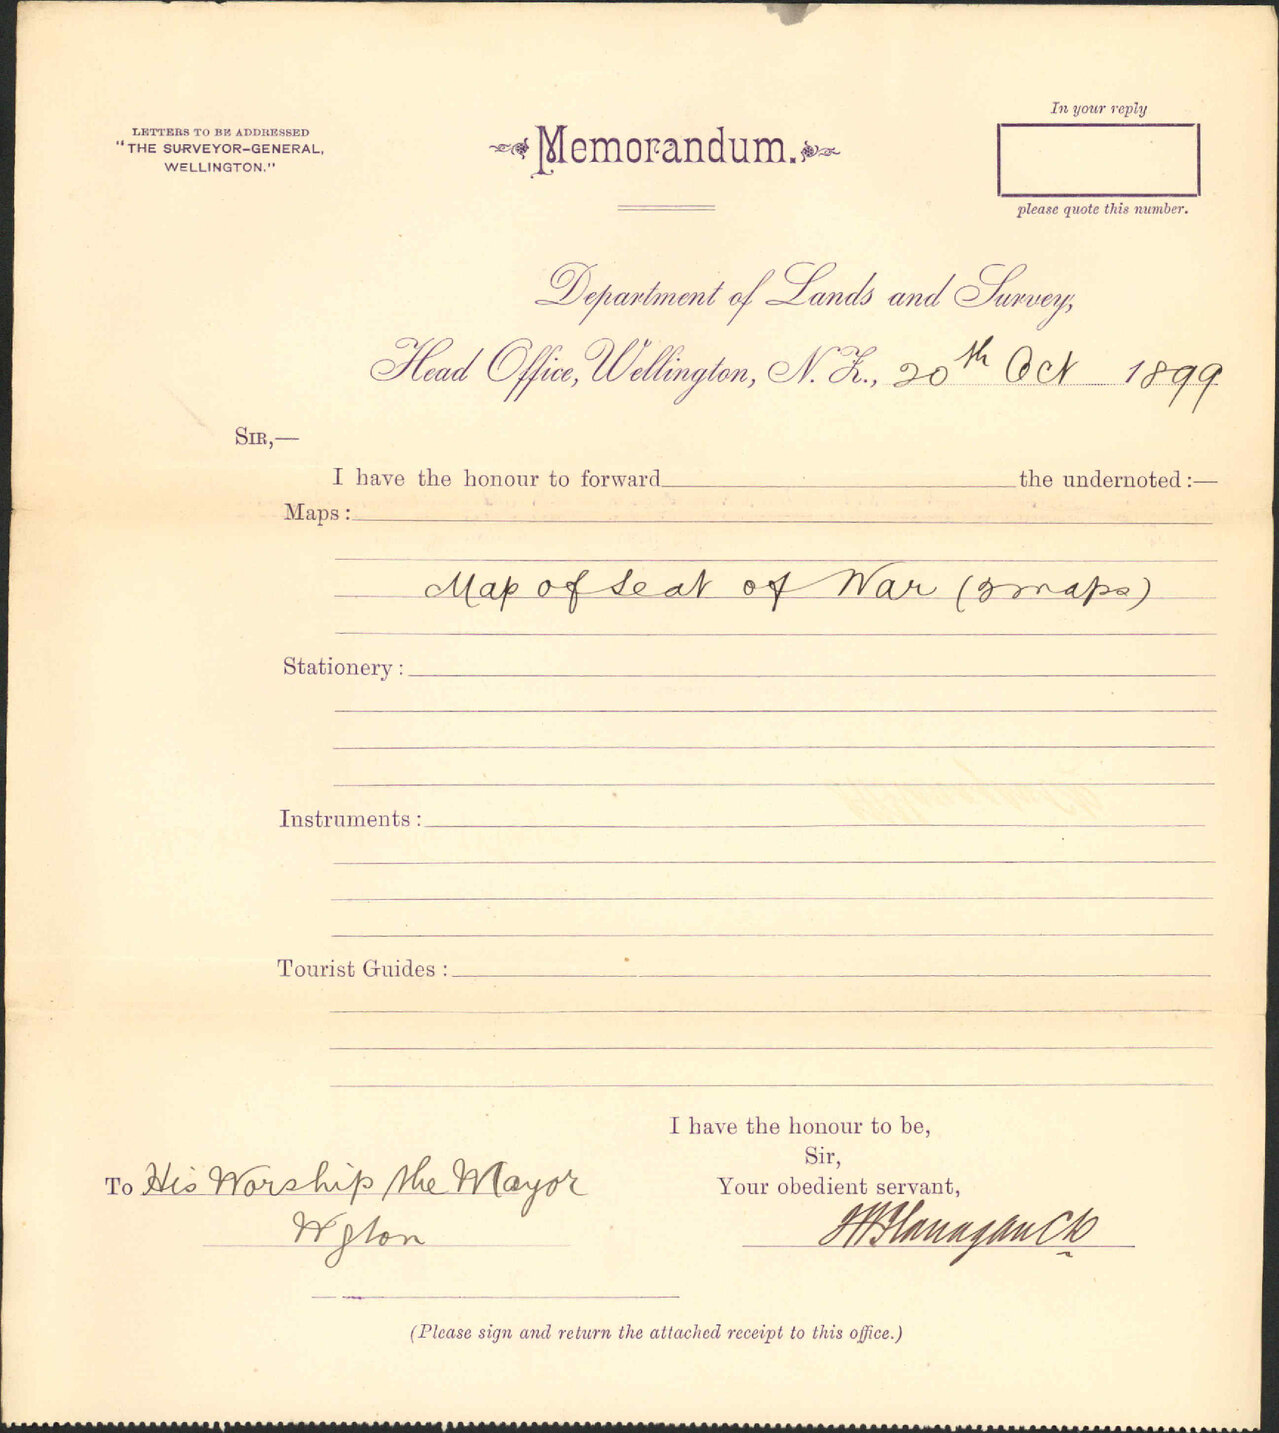 LETTERS TO BE ADDRESSED
"THE SURVEYOR-GENERAL,
WELLINGTON."
Memorandum.
In your reply
please quote this number.
Department of Lands and Survey,
Head Office, Wellington, N.Z., 20th Oct 1899
SIR,—
I have the honour to forward the undernoted:—
Maps:
Map of Seat of War (2 maps)
Stationery:
Instruments:
Tourist Guides:
I have the honour to be,
Sir,
Your obedient servant,
Flanagan Ck
To His Worship the Mayor
Wgton
(Please sign and return the attached receipt to this office.)